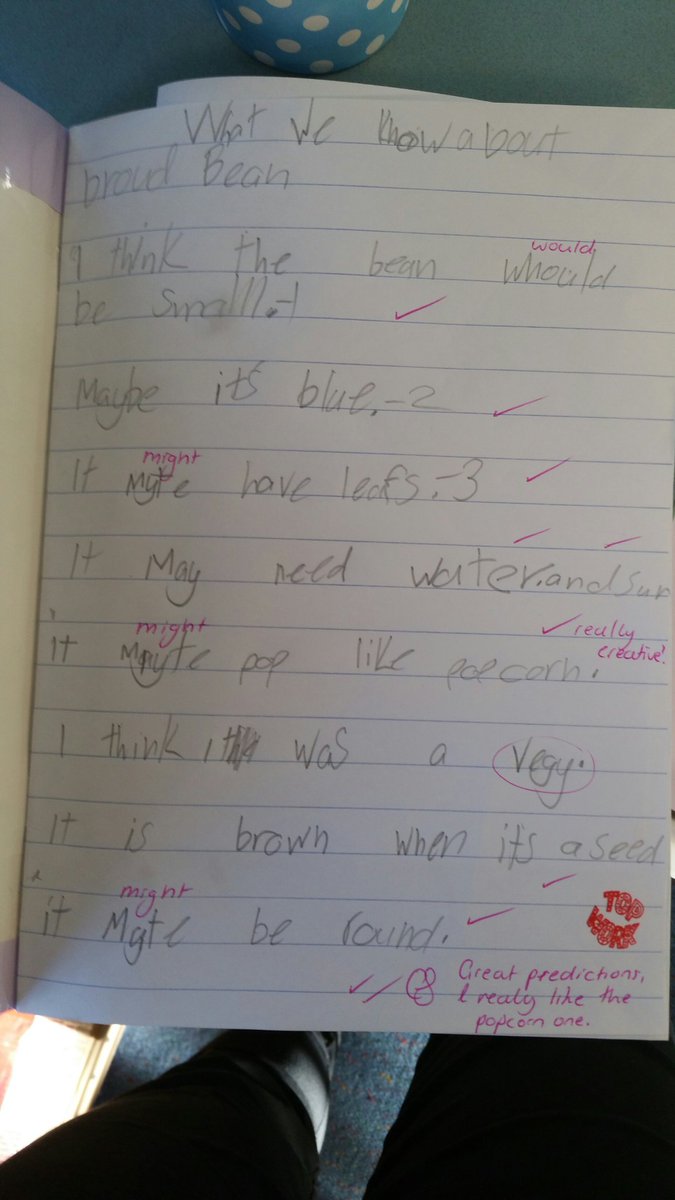 What We know about
broud Bean
would
I think the bean whould
be smalll.-1
Maybe it's blue.-2
might
It Myte have leafs.-3
It May need water.and sun
might
really
creative!
it Myte pop like popcorn.
I think it was a vegy.
It is brown when it's a seed
might
it Myte be round.
TOP
WORK
Great predichons,
I really like the
popcorn one.